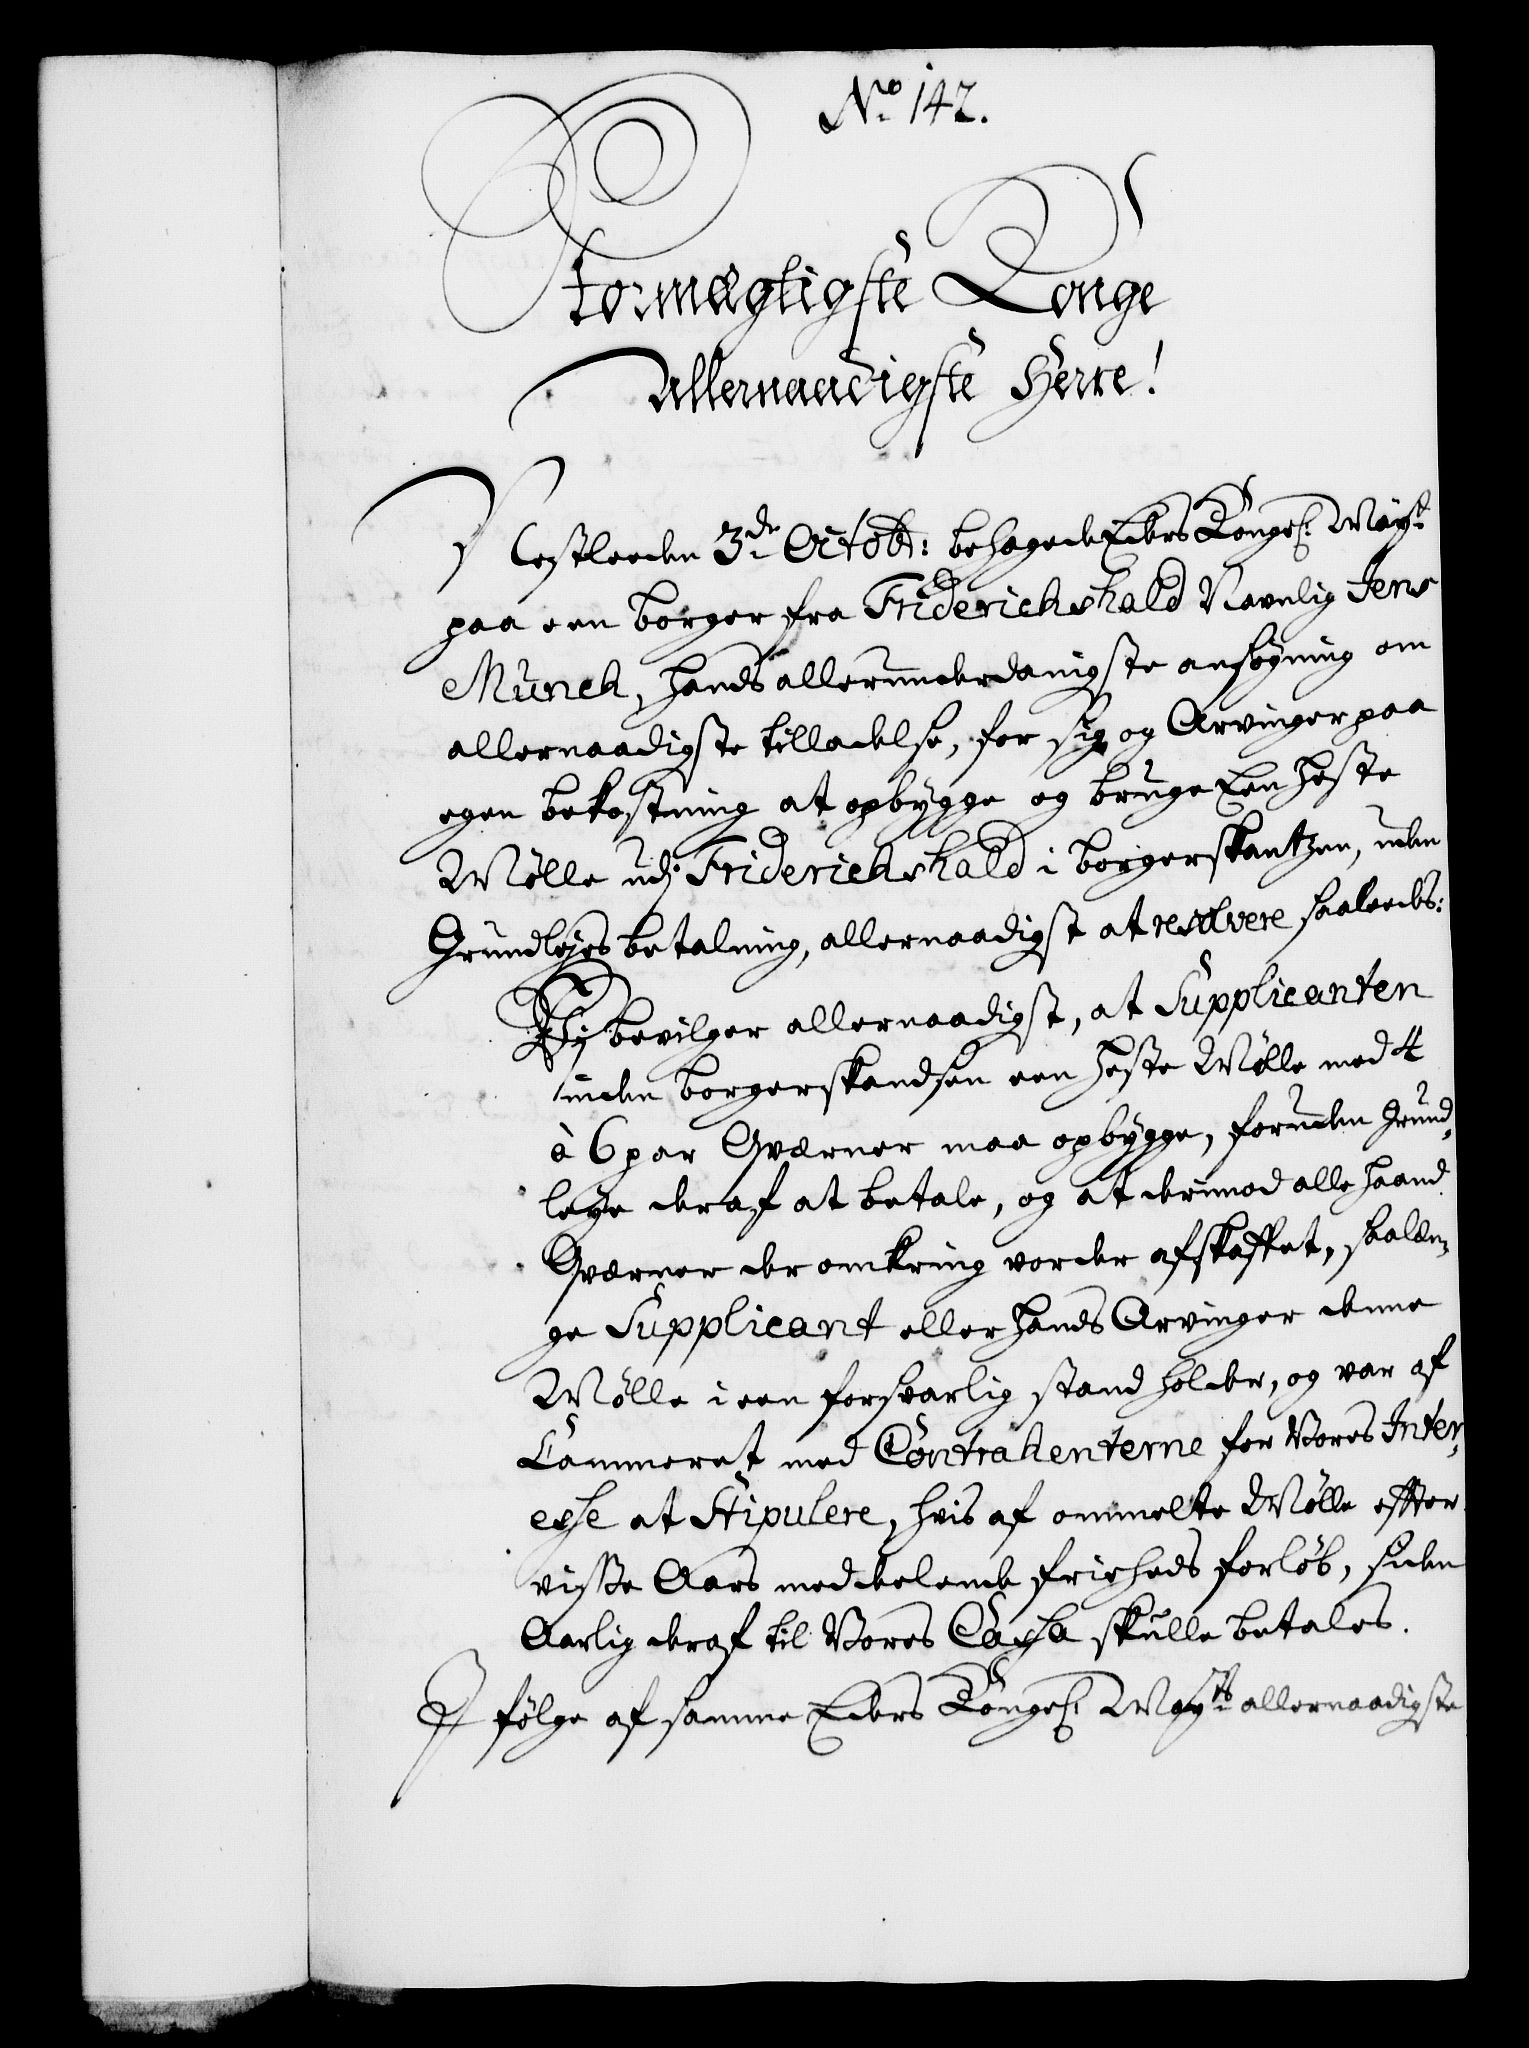 No. 142.
Stormægtigste Konge
Allernaadigste Herre!
Nestleeden 3de Octob: behagede Eders Kongel: Mayt.
paa een borger fra Friderichshald Navnlig Jens
Munch, hands allerunderdanigste ansøgning om
allernaadigste tilladelse, for sig og Arvinger paa
egen bekostning at opbygge og bruge Een heste
Mølle udj Friderichshald i borgerskantzen, uden
Grundlejes betalning, allernaadigst at resolvere saaleedes:
Vj bevilger allernaadigst, at Supplicanten
inden borgerskandsen een heste Mølle med 4
à 6 par Qværner maa opbygge, foruden Grund„
leye deraf at betale, og at derimod alle haand
Qværner der omkring vorder afskaffet, saalæn„
ge Supplicant eller hands Arvinger denne
Mølle i een forsvarlig stand holder, og var af
Cammeret med Contrahenterne for Vores Inter„
esse at Stipulere, hvis af ommelte Mølle effter
visse Aars meddelende friheds forløb, siden
Aarlig deraf til Vores Cassa skulle betales.
I følge af samme Eders Kongel: Mayts allernaadigste